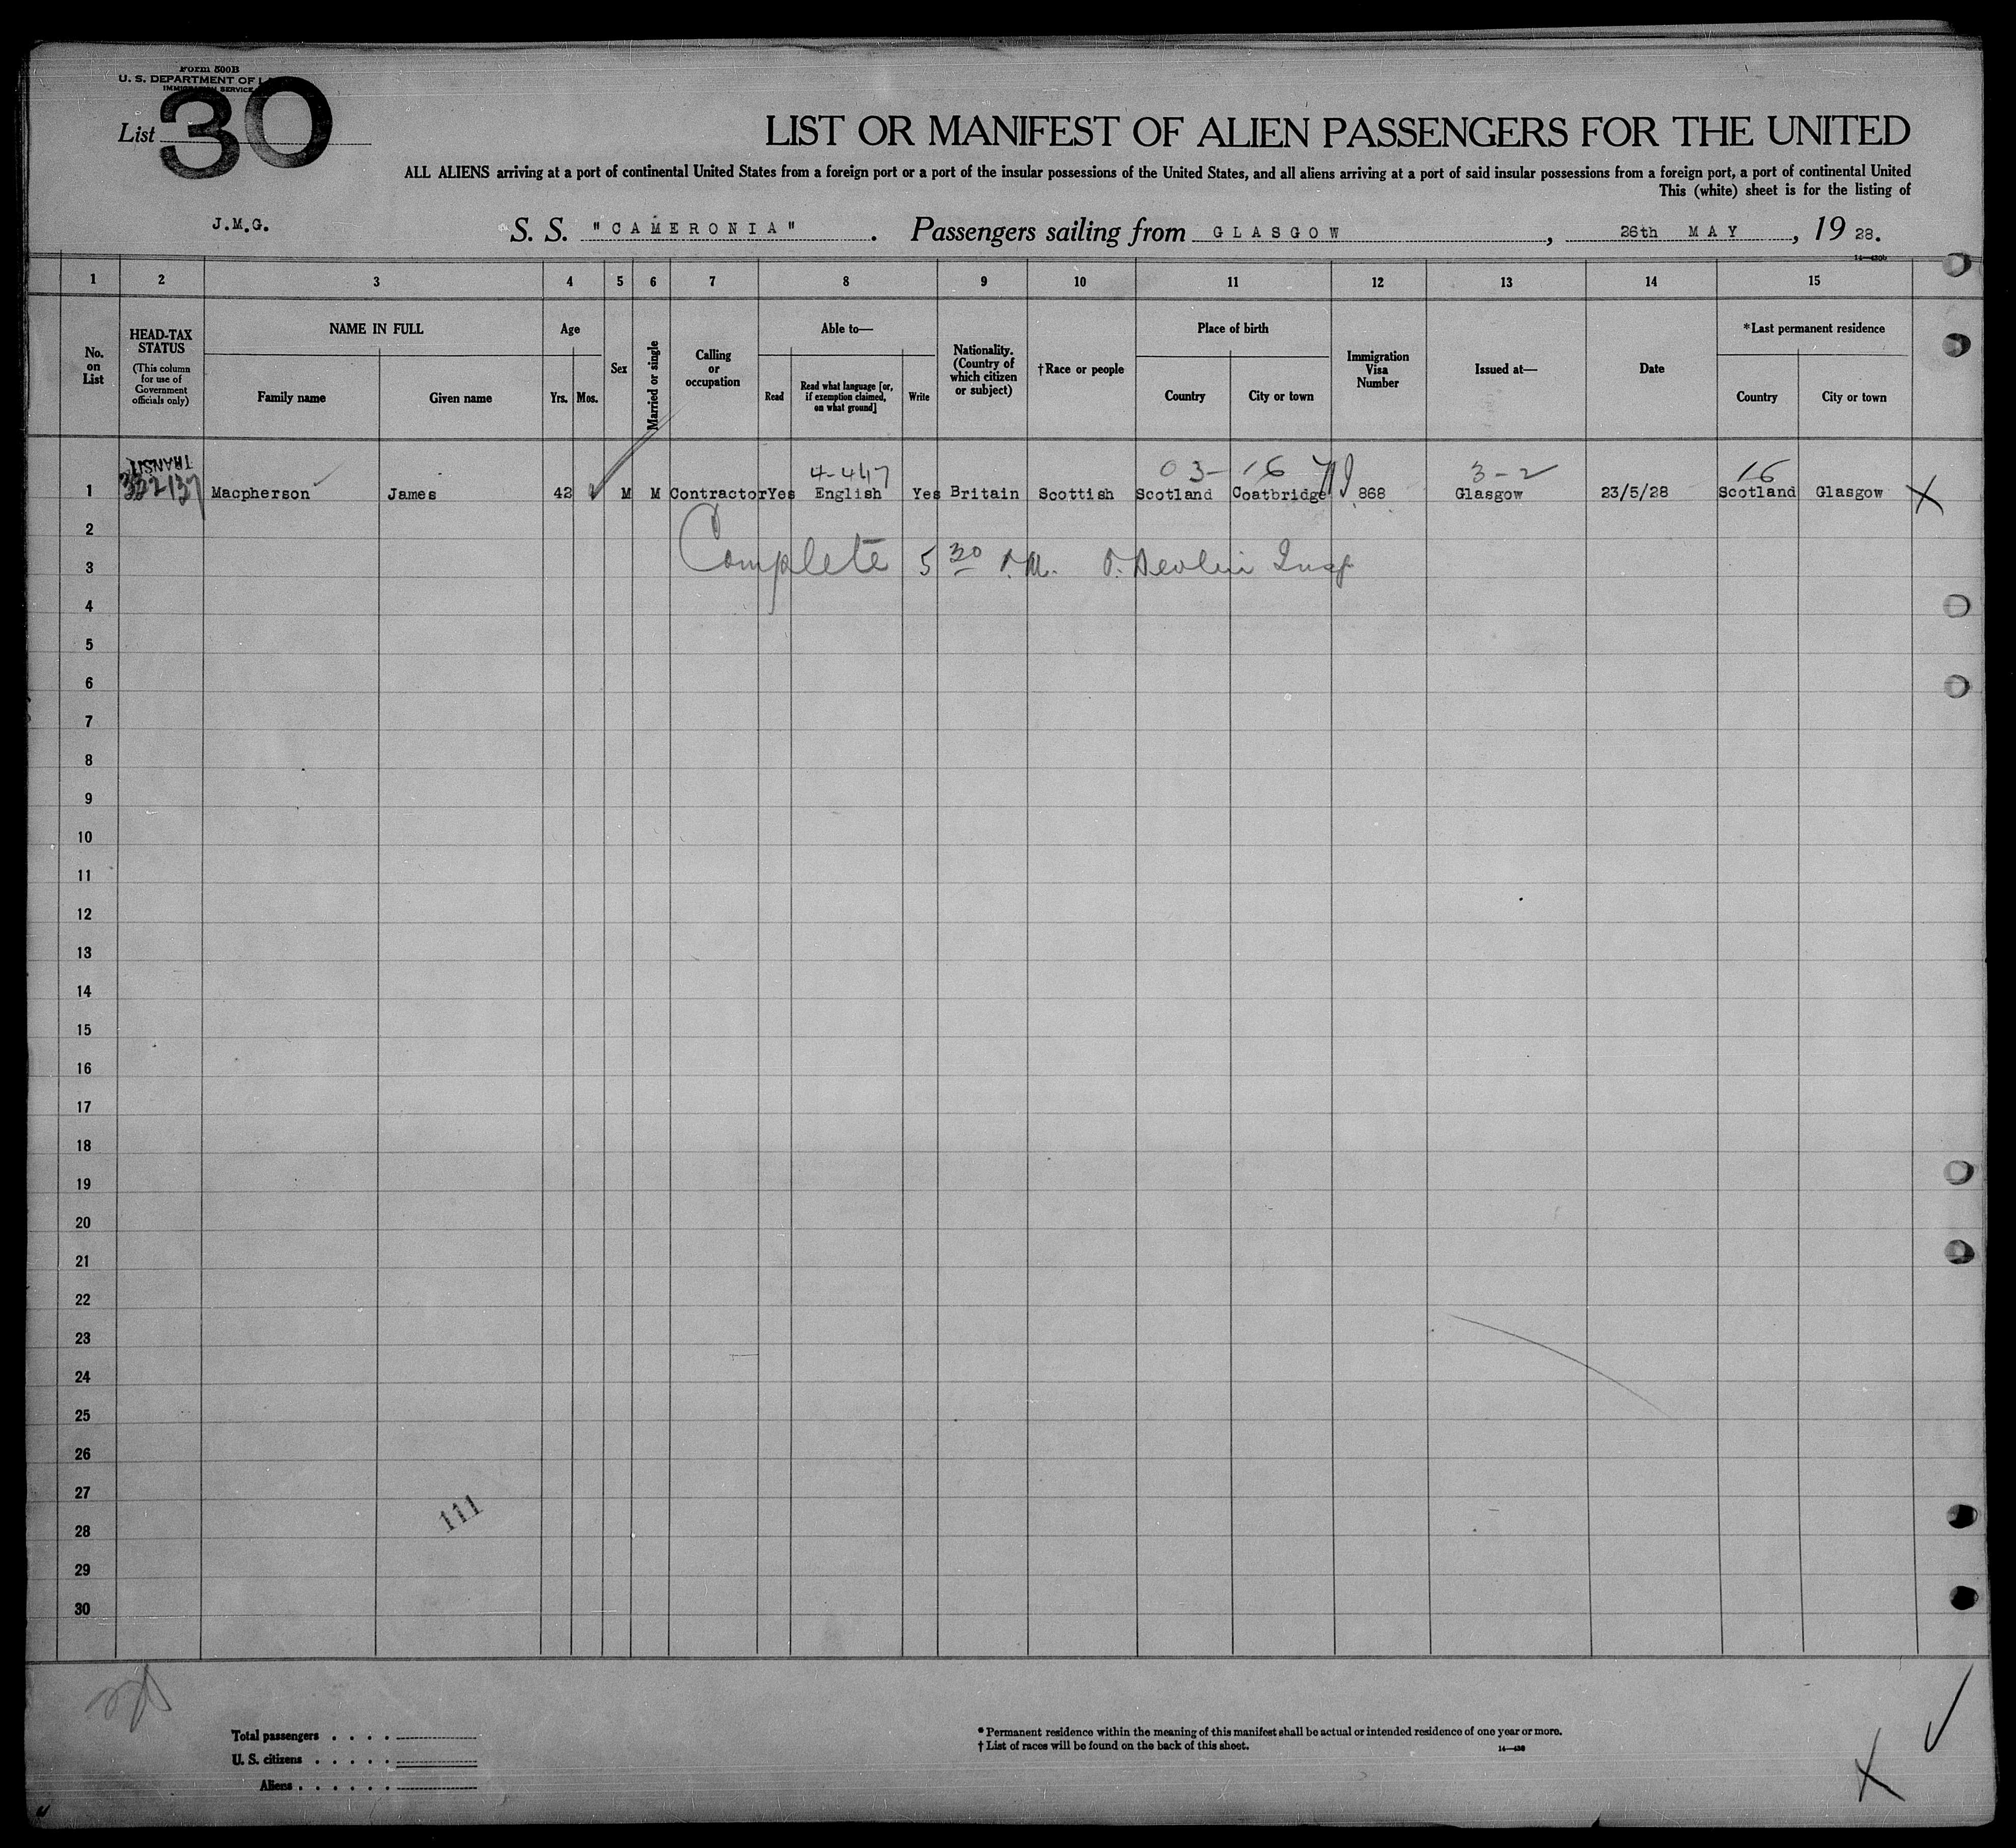 Form 500B
U. S. DEPARTMENT OF
IMMIGRATION SERVICE
List 30
LIST OR MANIFEST OF ALIEN PASSENGERS FOR THE UNITED
ALL ALIENS arriving at a port of continental United States from a foreign port or a port of the insular possessions of the United States, and all aliens arriving at a port of said insular possessions from a foreign port, a port of continental United
This (white) sheet is for the listing of
J.M.G.
S. S. "CAMERONIA". Passengers sailing from GLASGOW, 26th MAY, 19 28.
14—430b
1 2 3 4 5 6 7 8 9 10 11 12 13 14 15
No. on List
HEAD-TAX STATUS (This column for use of Government officials only)
NAME IN FULL
Family name
Given name
Age
Yrs. Mos.
Sex
Married or single
Calling or occupation
Able to—
Read
Read what language [or, if exemption claimed, on what ground]
Write
Nationality. (Country of which citizen or subject)
†Race or people
Place of birth
Country
City or town
Immigration Visa Number
Issued at—
Date
*Last permanent residence
Country
City or town
TRANSIT
4-447 03- 16 3-2 16
1 332137 Macpherson James 42 M M Contractor Yes English Yes Britain Scottish Scotland Coatbridge 868 Glasgow 23/5/28 Scotland Glasgow X
2
3 Complete 5 30 P.M. Devlin Insp
4
5
6
7
8
9
10
11
12
13
14
15
16
17
18
19
20
21
22
23
24
25
26
27
111
28
29
30
Total passengers . . . .
U. S. citizens . . . . .
Aliens . . . . . .
* Permanent residence within the meaning of this manifest shall be actual or intended residence of one year or more.
† List of races will be found on the back of this sheet.
14—430
X